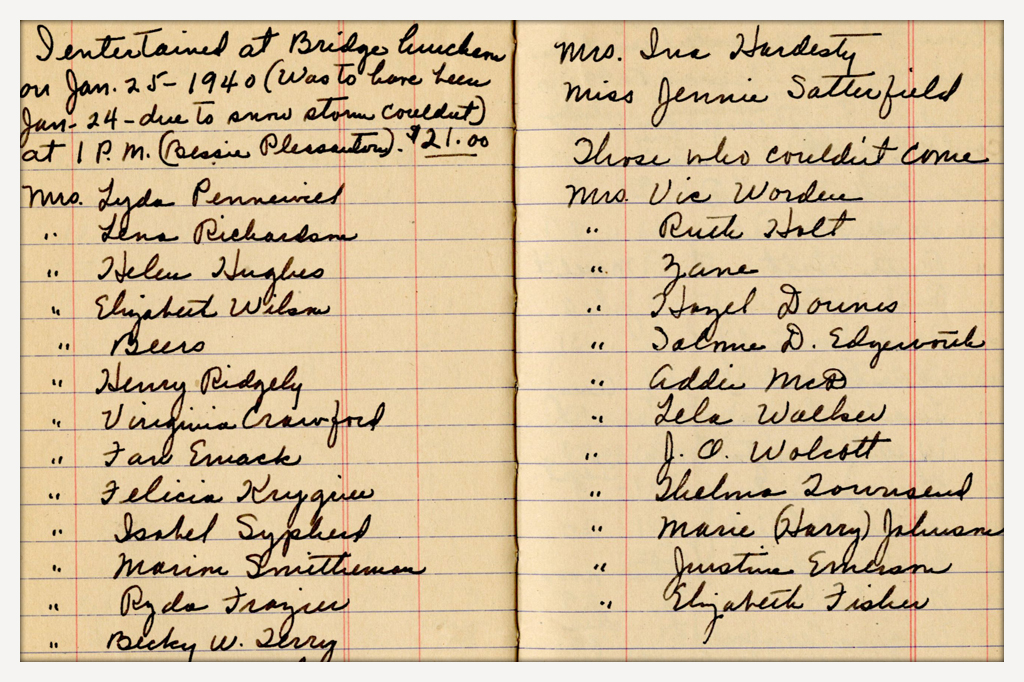 I entertained at Bridge luncheon
on Jan. 25 - 1940 (Was to have been
Jan - 24 - due to snow storm couldn't)
at 1 P.M. (Bessie Pleasanton). $21.00
Mrs. Lyda Pennewiel
" Lena Richardson
" Helen Hughes
" Elizabeth Wilson
" Beers
" Henry Ridgely
" Virginia Crawford
" Fan Emack
" Felicia
" Isabel Sypherd
" Marion Smitheman
" Ryda Frazier
" Becky W. Terry
Mrs. Ina Hardesty
Miss Jennie Satterfield
Those who couldn't come
Mrs. Vic Worden
" Ruth Holt
" Zane
" Hazel Downes
" D. Edgeworth
" Addie McD
" Lela Walker
" J. O. Wolcott
" Thelma Townsend
" Marie (Harry) Johnson
" Justine Emerson
" Elizabeth Fisher